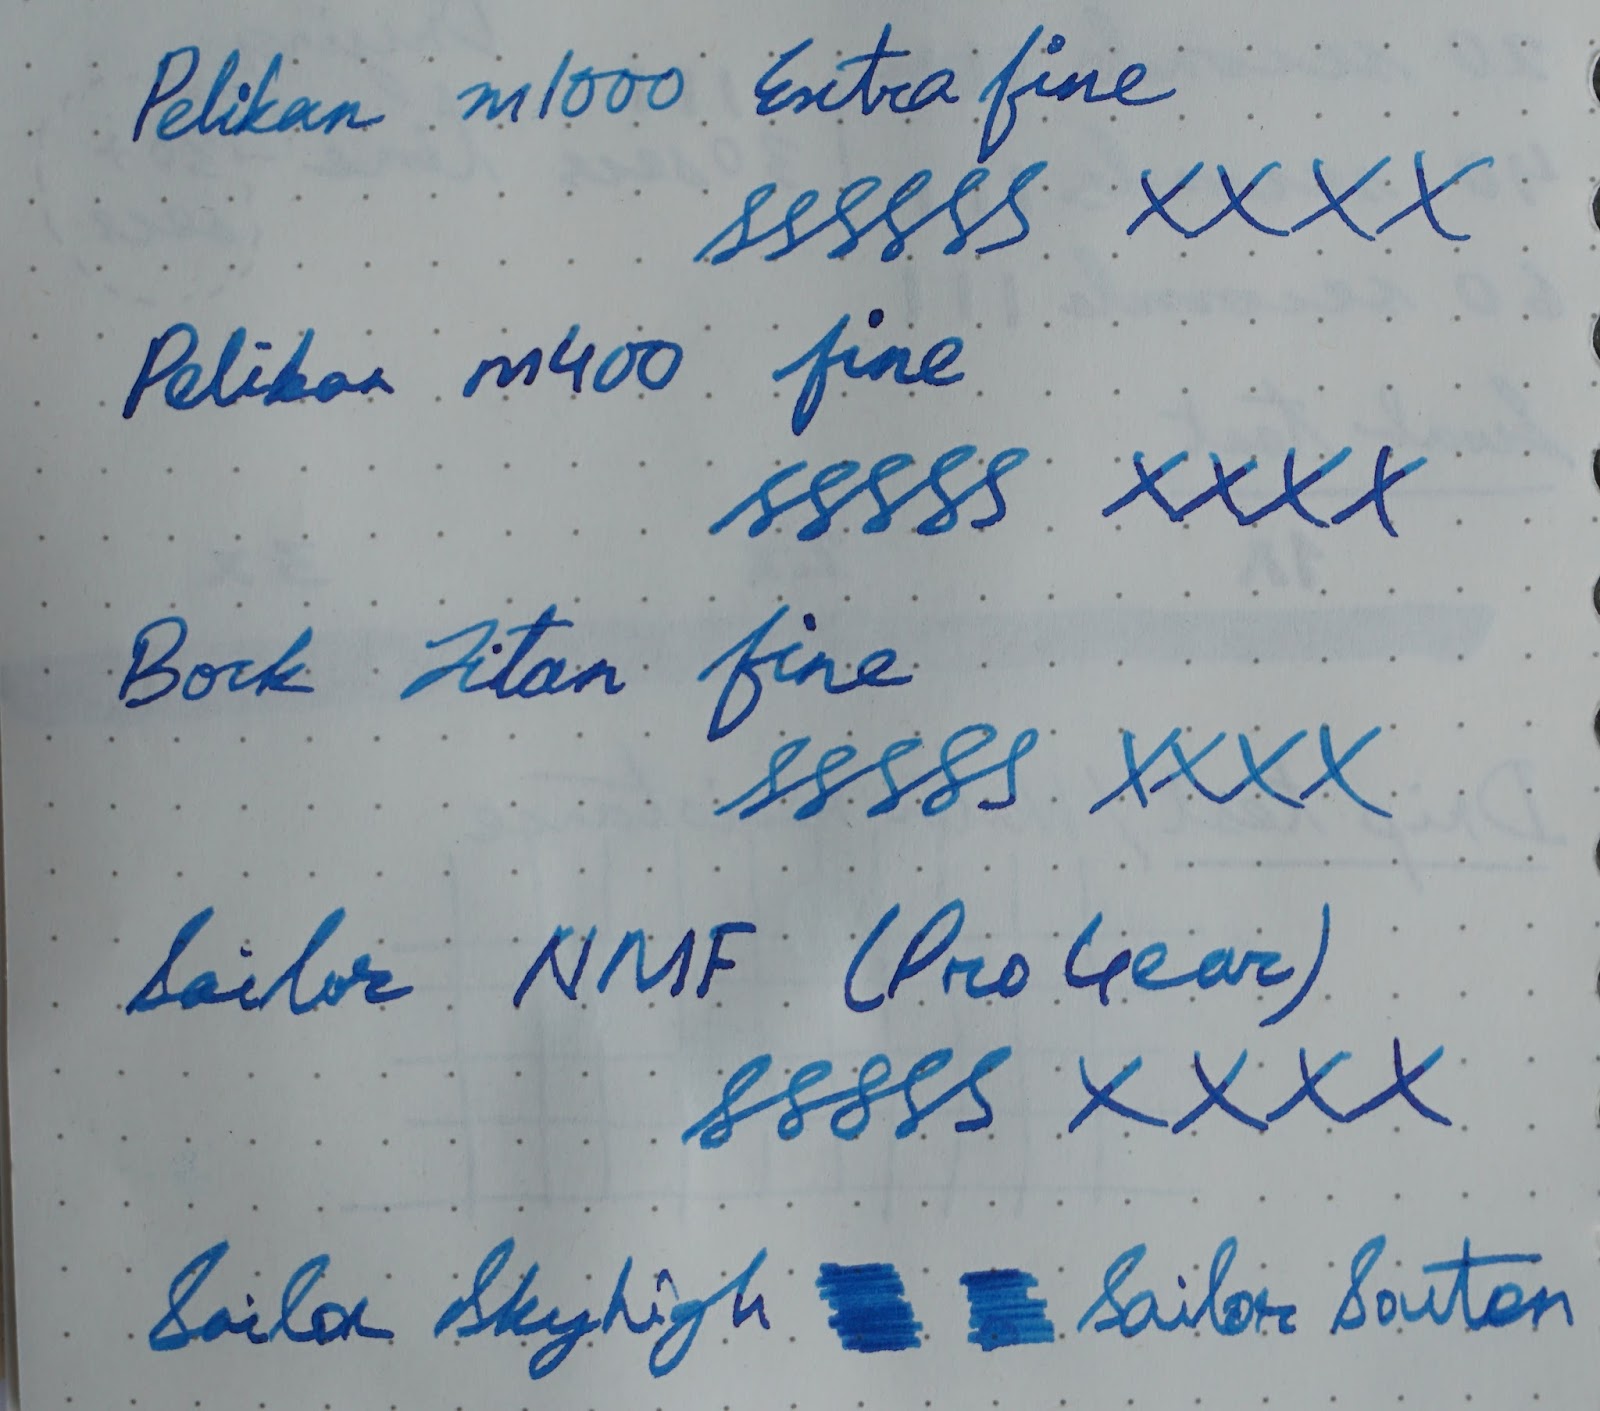 Pelikan m1000 Extra fine
ssssss XXXX
Pelikan m400 fine
sssss XXXX
Bock Titan fine
sssss XXXX
Sailor NMF (Pro Gear)
sssss XXXX
Sailor Skyhigh Sailor Souten